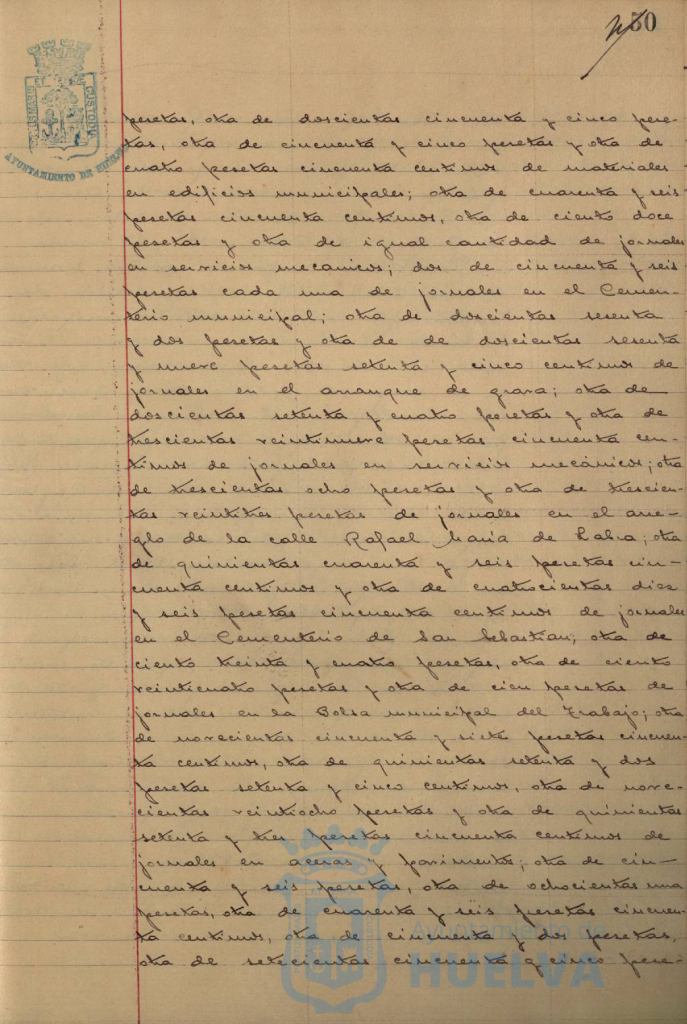 50
AYUNTAMIENTO DE HUELVA
pesetas, otra de doscientas cincuenta y cinco pese-
tas, otra de cincuenta y cinco pesetas y otra de
cuatro pesetas cincuenta centimos de materiales
en edificios municipales; otra de cuarenta y seis
pesetas cincuenta centimos, otra de ciento doce
pesetas y otra de igual cantidad de jornales
en servicios mecanicos; dos de cincuenta y seis
pesetas cada una de jornales en el Cemen-
terio municipal; otra de doscientas sesenta
y dos pesetas y otra de de doscientas sesenta
y nueve pesetas setenta y cinco centimos de
jornales en el arranque de grava; otra de
doscientas setenta y cuatro pesetas y otra de
trescientas veintinueve pesetas cincuenta cen-
timos de jornales en servicios mecánicos; otra
de trescientas ocho pesetas y otra de trescien-
tas veintitres pesetas de jornales en el arre-
glo de la calle Rafael María de Labra; otra
de quinientas cuarenta y seis pesetas cin-
cuenta centimos y otra de cuatrocientas diez
y seis pesetas cincuenta centimos de jornales
en el Cementerio de San Sebastian; otra de
ciento treinta y cuatro pesetas, otra de ciento
veinticuatro pesetas y otra de cien pesetas de
jornales en la Bolsa municipal del Trabajo; otra
de novecientas cincuenta y siete pesetas cincuen-
ta centimos, otra de quinientas setenta y dos
pesetas setenta y cinco centimos, otra de nove-
cientas veintiocho pesetas y otra de quinientas
setenta y tres pesetas cincuenta centimos de
jornales en aceras y pavimentos; otra de cin-
cuenta y seis pesetas, otra de ochocientas una
pesetas, otra de cuarenta y seis pesetas cincuen-
ta centimos, otra de cincuenta y dos pesetas,
otra de setecientas cincuenta y cinco pese-
Ayuntamiento de
HUELVA